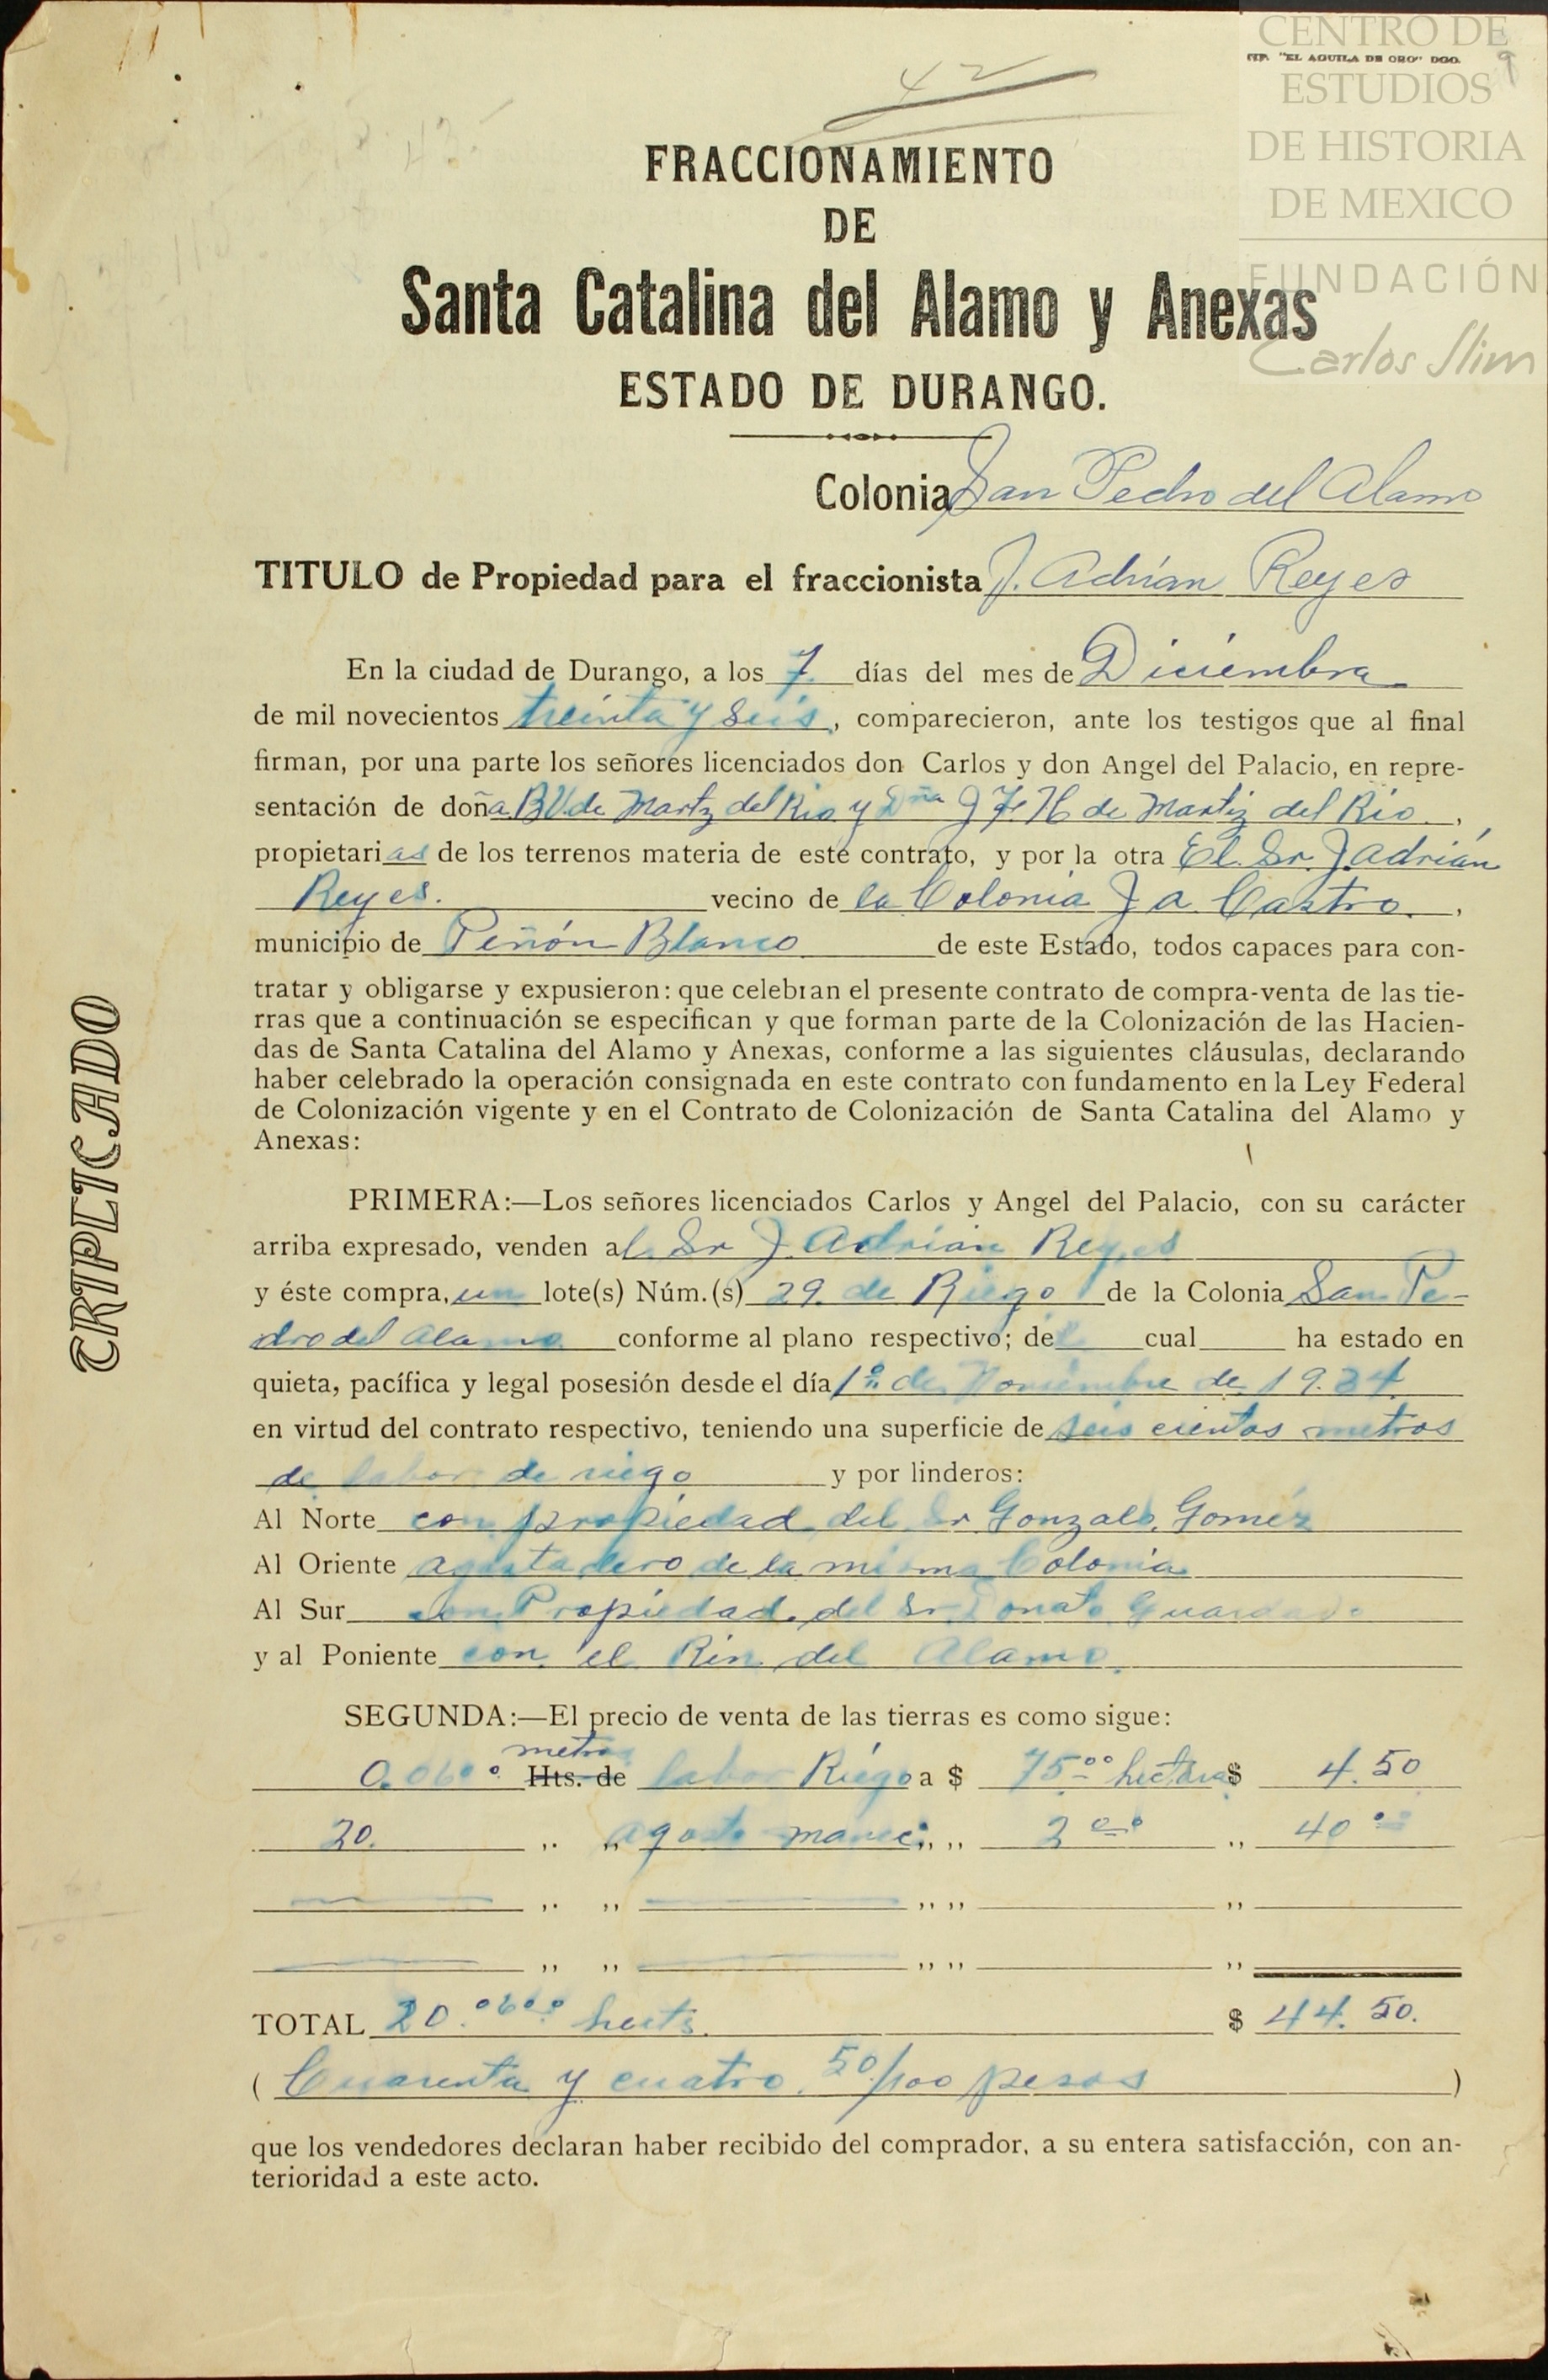 CENTRO DE
TIP. "EL AGUILA DE ORO" DGO.
9
ESTUDIOS
DE HISTORIA
DE MEXICO
FUNDACIÓN
Carlos Slim
42
FRACCIONAMIENTO
DE
Santa Catalina del Alamo y Anexas
ESTADO DE DURANGO.
Colonia San Pedro del Alamo
TITULO de Propiedad para el fraccionista J. Adrián Reyes
En la ciudad de Durango, a los 7 días del mes de Diciembre
de mil novecientos treinta y seis, comparecieron, ante los testigos que al final
firman, por una parte los señores licenciados don Carlos y don Angel del Palacio, en repre-
sentación de doña B V. de Martz del Rio y Dña J F H de Martiz del Rio,
propietarias de los terrenos materia de este contrato, y por la otra El Sr. J. Adrián
Reyes. vecino de la Colonia J a Castro.,
municipio de Peñón Blanco de este Estado, todos capaces para con-
tratar y obligarse y expusieron: que celebran el presente contrato de compra-venta de las tie-
rras que a continuación se especifican y que forman parte de la Colonización de las Hacien-
das de Santa Catalina del Alamo y Anexas, conforme a las siguientes cláusulas, declarando
haber celebrado la operación consignada en este contrato con fundamento en la Ley Federal
de Colonización vigente y en el Contrato de Colonización de Santa Catalina del Alamo y
Anexas:
TRIPLICADO
PRIMERA:—Los señores licenciados Carlos y Angel del Palacio, con su carácter
arriba expresado, venden al Sr J. Adrián Reyes
y éste compra, un lote(s) Núm.(s) 29. de Riego de la Colonia San Pe-
dro del Alamo conforme al plano respectivo; del cual ha estado en
quieta, pacífica y legal posesión desde el día 1º de Noviembre de 19.34
en virtud del contrato respectivo, teniendo una superficie de seis cientos metros
de labor de riego y por linderos:
Al Norte con propiedad del Sr Gonzalo Gomez
Al Oriente agostadero de la misma Colonia
Al Sur con Propiedad. del Sr. Donato Guardado
y al Poniente con el Rin del Alamo.
SEGUNDA:—El precio de venta de las tierras es como sigue:
metros
0.0600 Hts. de labor Riego a $ 75.00 hectárea $ 4.50
20. ,, ,, agosto ,, ,, 2 00 ,, 40 00
,, ,, ,, ,, ,,
,, ,, ,, ,, ,,
TOTAL 20.0600 hects. $ 44.50.
( Cuarenta y cuatro. 50/100 pesos )
que los vendedores declaran haber recibido del comprador, a su entera satisfacción, con an-
terioridad a este acto.